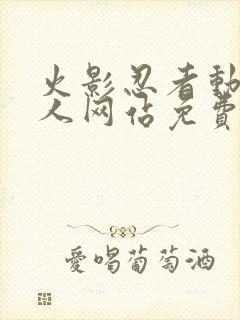 火影忍者動
人网佔免費
愛喝葡萄酒